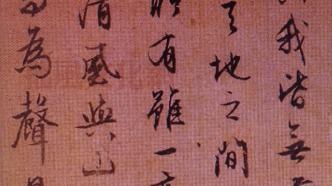 我皆無
天地之間
所有雖一
清風與山
為聲